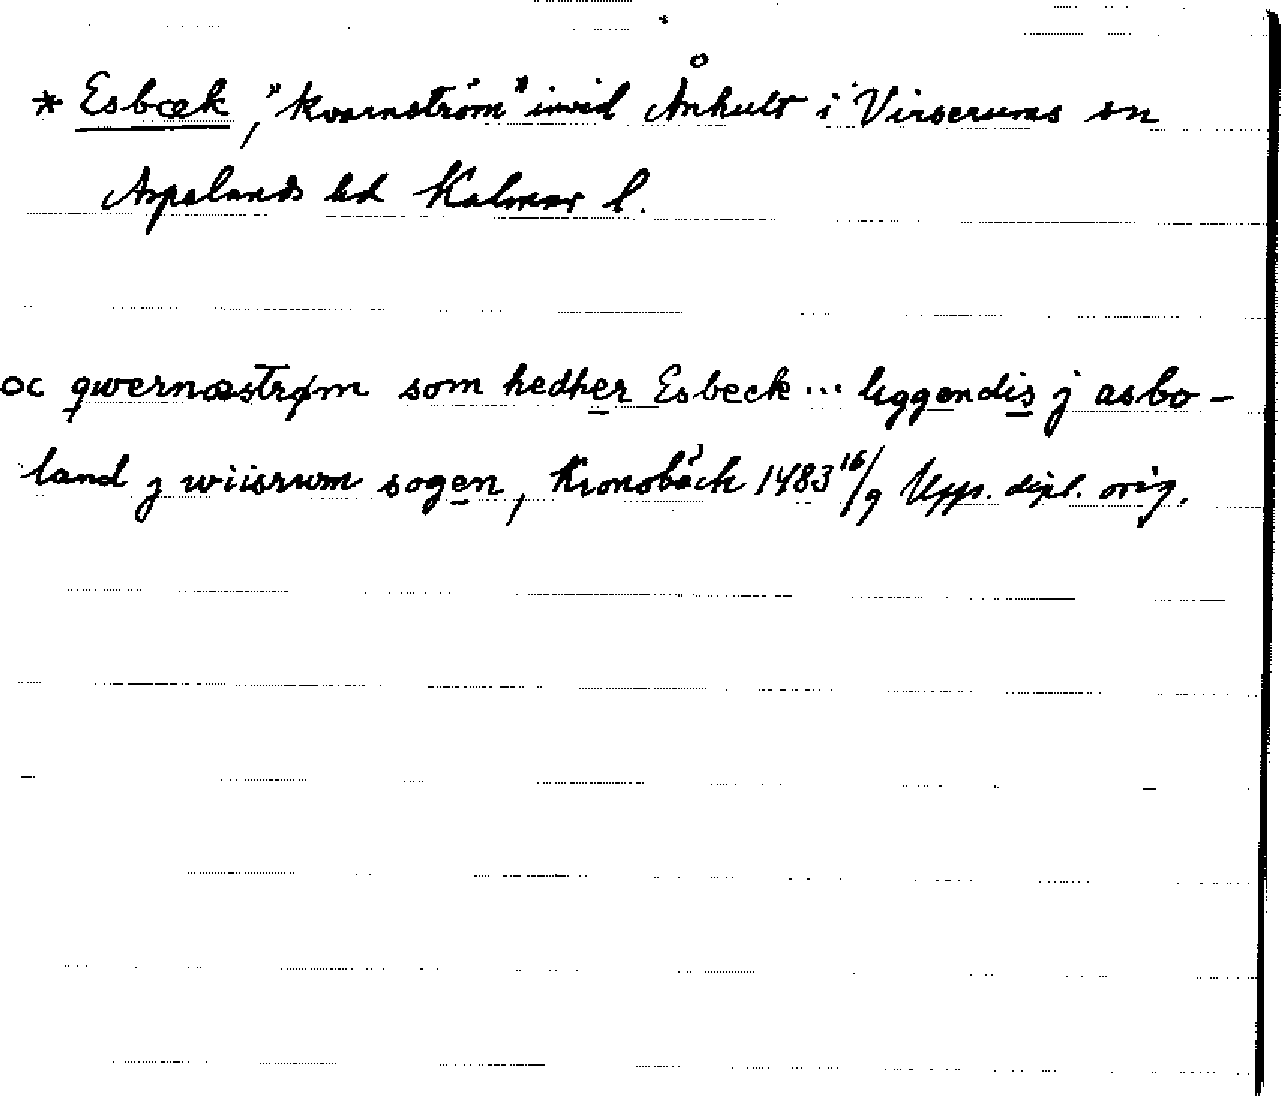 * Esbæk, "kvarnström" invid Ånhult i Virserums sn
Aspelands hd Kalmar l.
oc qwernæstrøm som hedher Esbeck ... liggendis j asbo-
land j wiisrum sogen, Kronobäck 1483 16/9 Upps. dipl. orig.